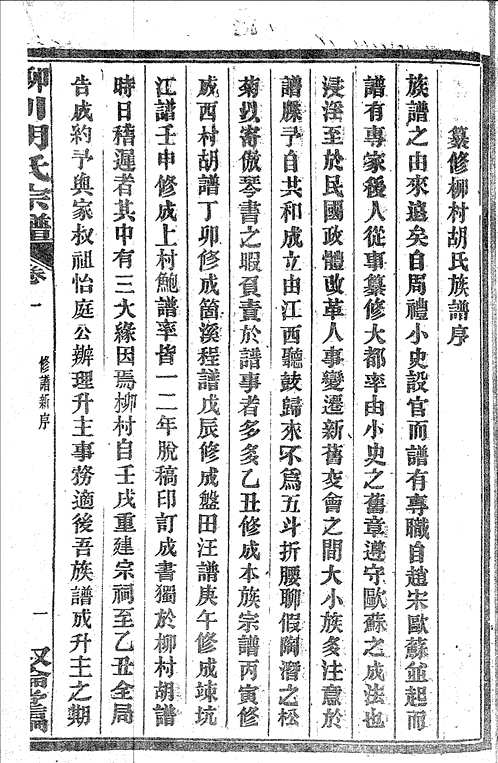 纂修柳村胡氏族譜序
族譜之由來遠矣自周禮小史設官而譜有專職自趙宋歐蘇並起而
譜有專家後人從事纂修大都率由小史之舊章遵守歐蘇之成法也
浸淫至於民國政體改革人事變遷新舊交會之間大小族多注意於
譜牒予自共和成立由江西聽鼓歸來不爲五斗折腰聊假陶潛之松
菊以寄傲琴書之暇負責於譜事者多多乙丑修成本族宗譜丙寅修
成西村胡譜丁卯修成箇溪程譜戊辰修成盤田汪譜庚午修成竦坑
江譜壬申修成上村鮑譜率皆一二年脫稿印訂成書獨於柳村胡譜
時日稽遲者其中有三大緣因焉柳村自壬戌重建宗祠至乙丑全局
告成約予與家叔祖怡庭公辦理升主事務適後吾族譜成升主之期
柳川胡氏宗譜 卷一
修譜新序
一